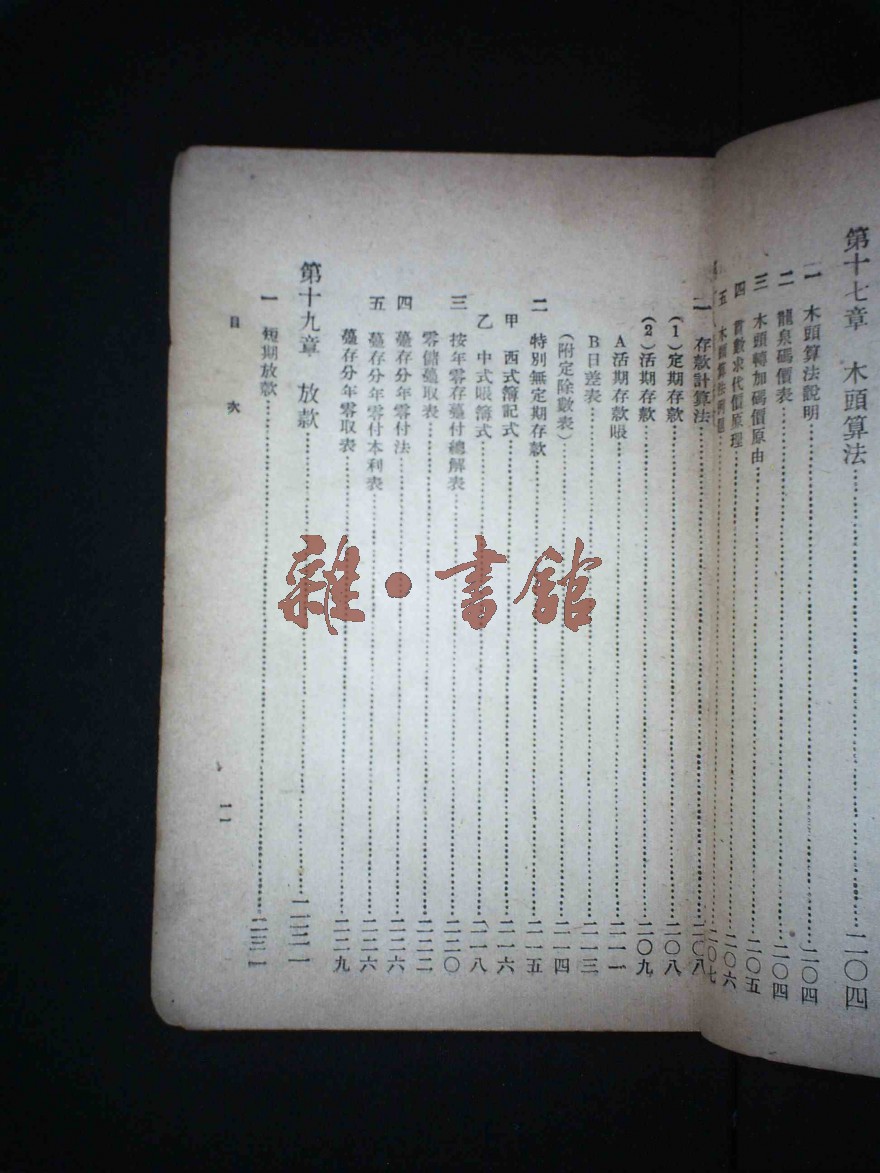 第十七章　木頭算法……二〇四
一　木頭算法說明……二〇四
二　龍泉碼價表……二〇四
三　木頭轉加碼價原由……二〇五
四　貫數求代價原理……二〇六
五　木頭算法例題……二〇七
二　存款計算法……二〇八
(1)定期存款……二〇八
(2)活期存款……二〇九
A活期存款賬……二一一
B日差表……二一三
(附定除數表)……二一四
二　特別無定期存款……二一五
甲　西式簿記式……二一六
乙　中式賬簿式……二一八
三　按年零存躉付總解表……二二〇
零儲躉取表……二二二
四　躉存分年零付法……二二六
五　躉存分年零付本利表……二二六
躉存分年零取表……二二九
第十九章　放款……二三一
一　短期放款……二三一
目次
一一
雜·書館